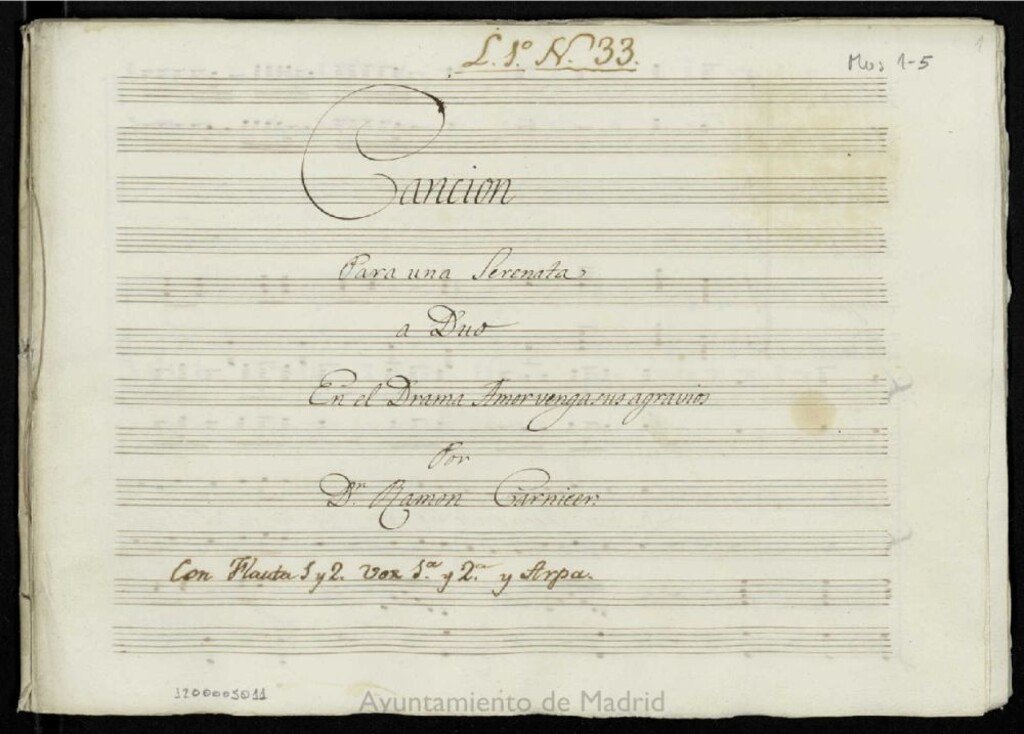 L. 1º N. 33.
Mus 1-5
1
Cancion
Para una Serenata
a Duo
En el Drama Amor venga sus agravios
Por
Dn. Ramon Carnicer.
Con Flauta 1 y 2. voz 1.ª y 2.ª y Arpa.
1200005011
Ayuntamiento de Madrid